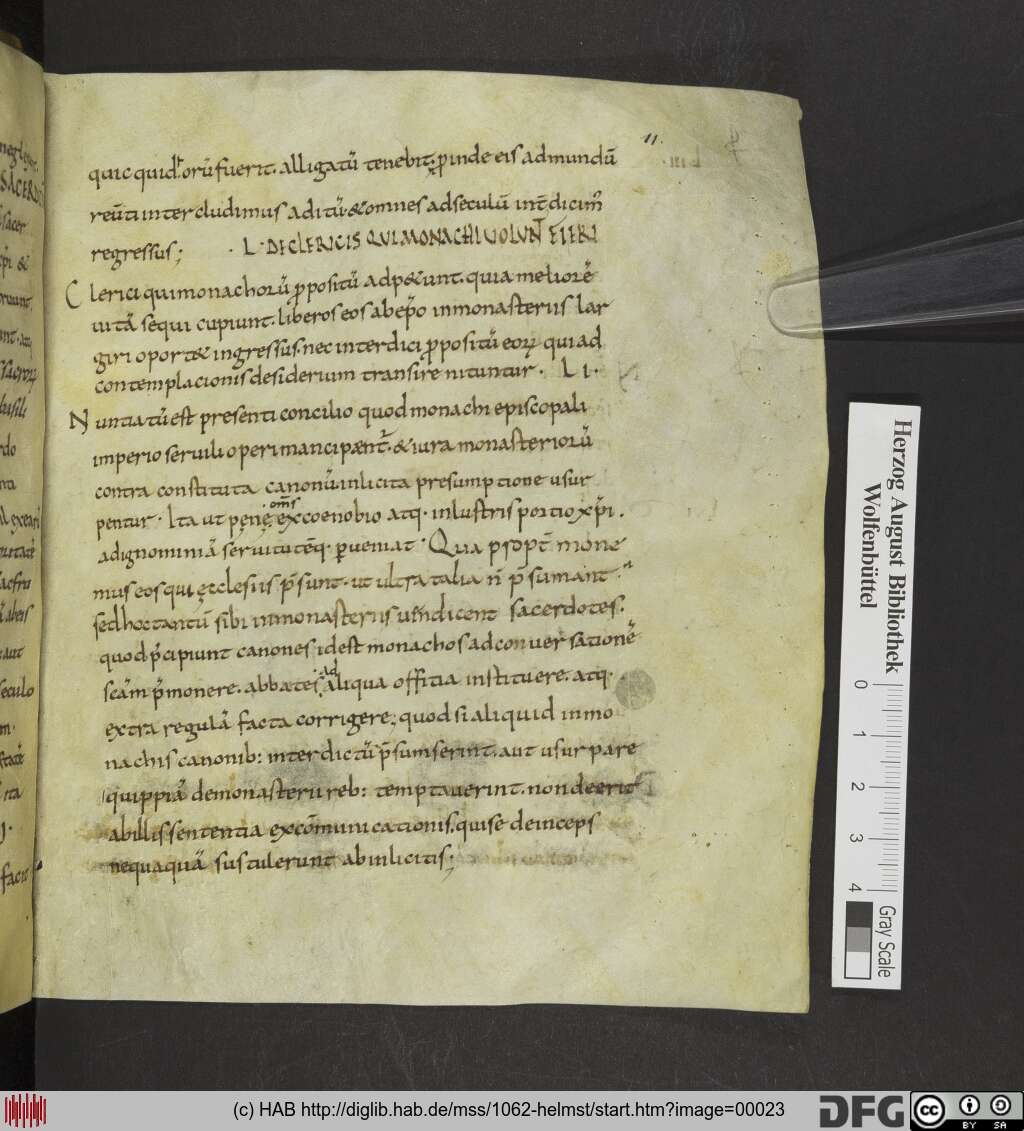 11.
quic quid horū fuerit. alligatū tenebit; ꝓinde eis ad mundū
reūti intercludimus aditū. & omnes ad seculū int̄dicim᷒
regressus; · L · DE CLERICIS QUI MONACHI UOLUNT̄ FIERI
Clerici qui monachorū ꝓpositū adp&unt. quia meliorē
uitā sequi cupiunt. liberos eos ab ep̄o in monasteriis lar
giri oport& ingressus. nec interdici ꝓpositū eoꝝ qui ad
contemplacionis desiderium transire nituntur · LI ·
Nuntiatū est presenti concilio quod monachi episcopali
imperio seruili operi mancipent̄. & iura monasteriorū
contra constituta canonū. inlicita presumptione usur
pentur. Ita ut pene om̄s
ex coenobio atq· inlustris portio xp̄i.
ad ignominiā seruitutēq· ꝑueniat · Qua ꝓpt̄ mone
mus eos qui ęcclesiis p̄sunt. ut ultra talia n̄ p̄sumant.
sed hoc tantū sibi in monasteriis uendicent sacerdotes.
quod p̄cipiunt canones id est monachos ad conuersationē
sc̄am p̄monere. abbates. ad
aliqua offitia instituere. atq·
extra regulā facta corrigere; quod si aliquid in mo
nachis canonib: interdictū p̄sumserint. aut usurpare
quippiā de monasterii reb: temptauerint. non deerit
ab illis sententia excōmunicationis. qui se deinceps
nequaquā sustulerunt ab inlicitis;
Herzog August Bibliothek
Wolfenbüttel
0 1 2 3 4
Gray Scale
(c) HAB http://diglib.hab.de/mss/1062-helmst/start.htm?image=00023
DFG
cc
BY SA